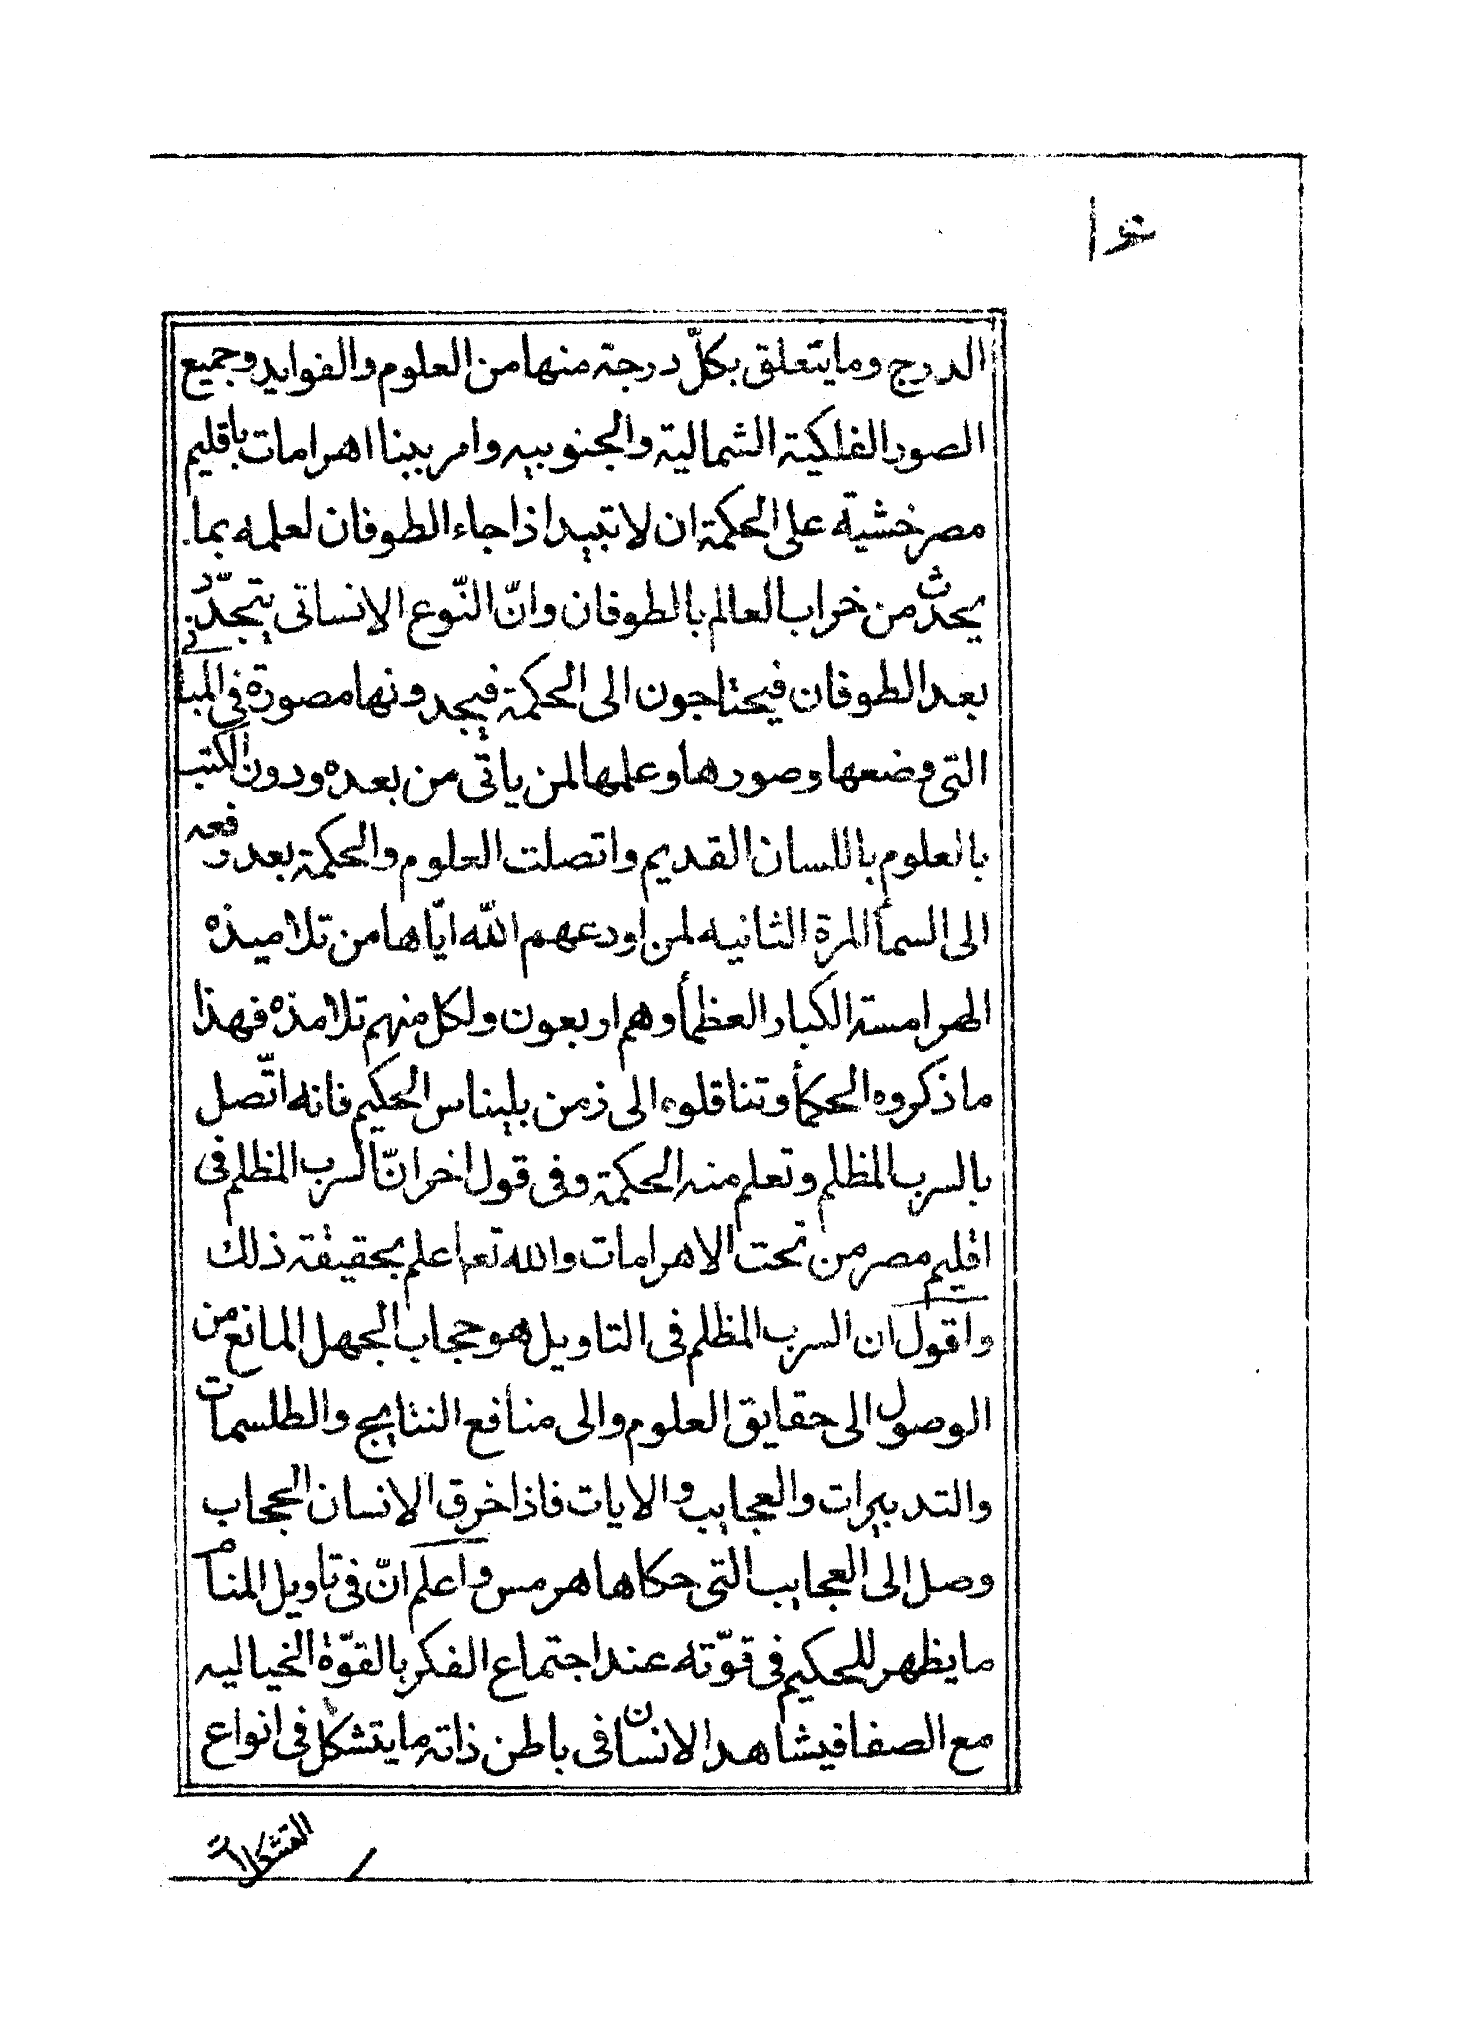 الدرج وما يتعلق بكلّ درجة منها من العلوم والفوايد وجميع
الصور الفلكية الشمالية والجنوبيه وامر ببنا اهرامات باقليم
مصر خشية على الحكمة ان لا تبيد اذا جاء الطوفان لعلمه بما
يحدث من خراب العالم بالطوفان وانّ النّوع الانسانى يتجدّد
بعد الطوفان فيحتاجون الى الحكمة فيجدونها مصورة فى المبانى
التى وضعها وصورها وعلمها لمن ياتى من بعده ودون الكتب
بالعلوم باللسان القديم واتصلت العلوم والحكمة بعد رفعه
الى السمأ المرة الثانيه لمن اودعهم الله ايّاها من تلاميذه
الهرامسة الكبار العظمأ وهم اربعون ولكل منهم تلامذه فهذا
ما ذكروه الحكمأ وتناقلوه الى زمن بليناس الحكيم فانه اتّصل
بالسرب المظلم وتعلم منه الحكمة وفى قول اخر انّ السرب المظلم فى
اقليم مصر من تحت الاهرامات والله تعا اعلم بحقيقة ذلك
واقول ان السرب المظلم فى التاويل هو حجاب الجهل المانع من
الوصول الى حقايق العلوم والى منافع النتايج والطلسمات
والتدبيرات والعجايب والايات فاذا خرق الانسان الحجاب
وصل الى العجايب التى حكاها هرمس واعلم انّ فى تاويل المنام
ما يظهر للحكيم فى قوّته عند اجتماع الفكر بالقوّة الخياليه
مع الصفا فيشاهد الانسان فى باطن ذاته ما يتشكل فى انواع
التشكلات